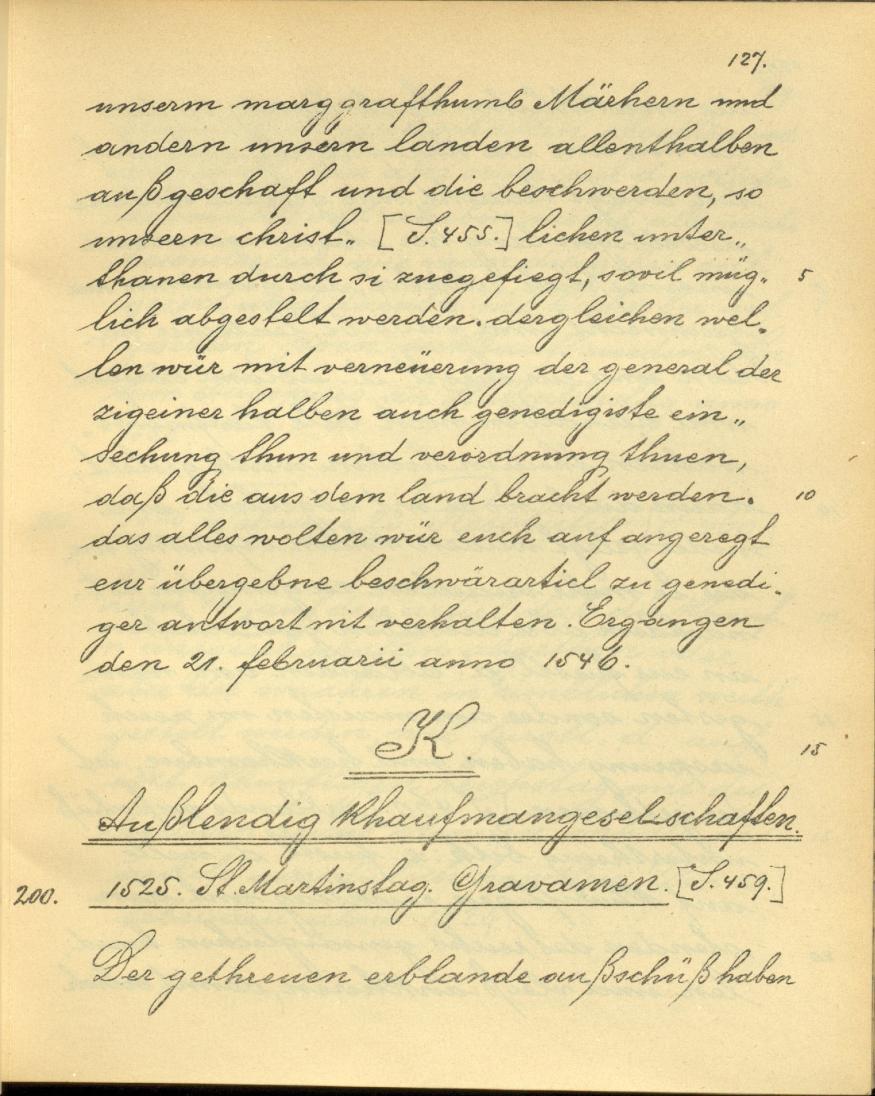 127.
unserm marggrafthumb Märhern und
andern unsern landen allenthalben
außgeschaft und die beschwerden, so
unsern christ„ [S. 455.] lichen unter„
thanen durch si zuegefiegt, sovil müg„ 5
lich abgestelt werden. dergleichen wel„
len wür mit verneüerung der general der
zigeiner halben auch genedigiste ein„
sechung thun und verordnung thuen,
daß die aus dem land bracht werden. 10
das alles wolten wür euch auf angeregt
eur übergebne beschwärarticl zu genedi„
ger antwort nit verhalten. Ergangen
den 21. februarii anno 1546.
K 15
Außlendig khaufmangeselschaften.
200. 1525. St. Martinstag. Gravamen. [S. 459.]
Der gethreuen erblande außschüß haben